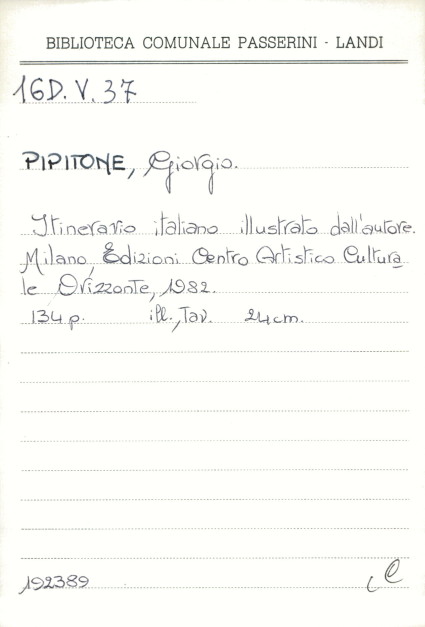 BIBLIOTECA COMUNALE PASSERINI - LANDI
16D. V. 37
PIPITONE, Giorgio.
Itinerario italiano illustrato dall'autore.
Milano, Edizioni Centro Artistico Cultura
le Orizzonte, 1982.
134 p. ill., Tav. 24 cm.
192389